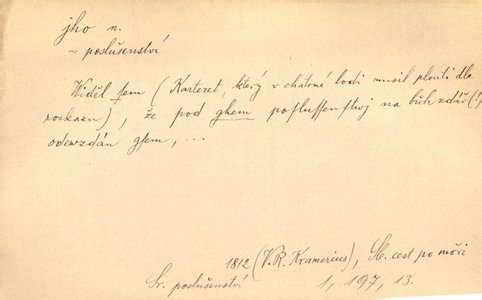 jho n.
~ poslušenství
Widěl sem (Karteret, který v chatrné lodi musil plouti dla
rozkazu), že pod ghem posluffenstwj na bůhzdař (!)
odewzdán gsem, ...
1812 (V. R. Kramerius), Sb. cest po moři
Sr. poslušenství 1, 197, 13.